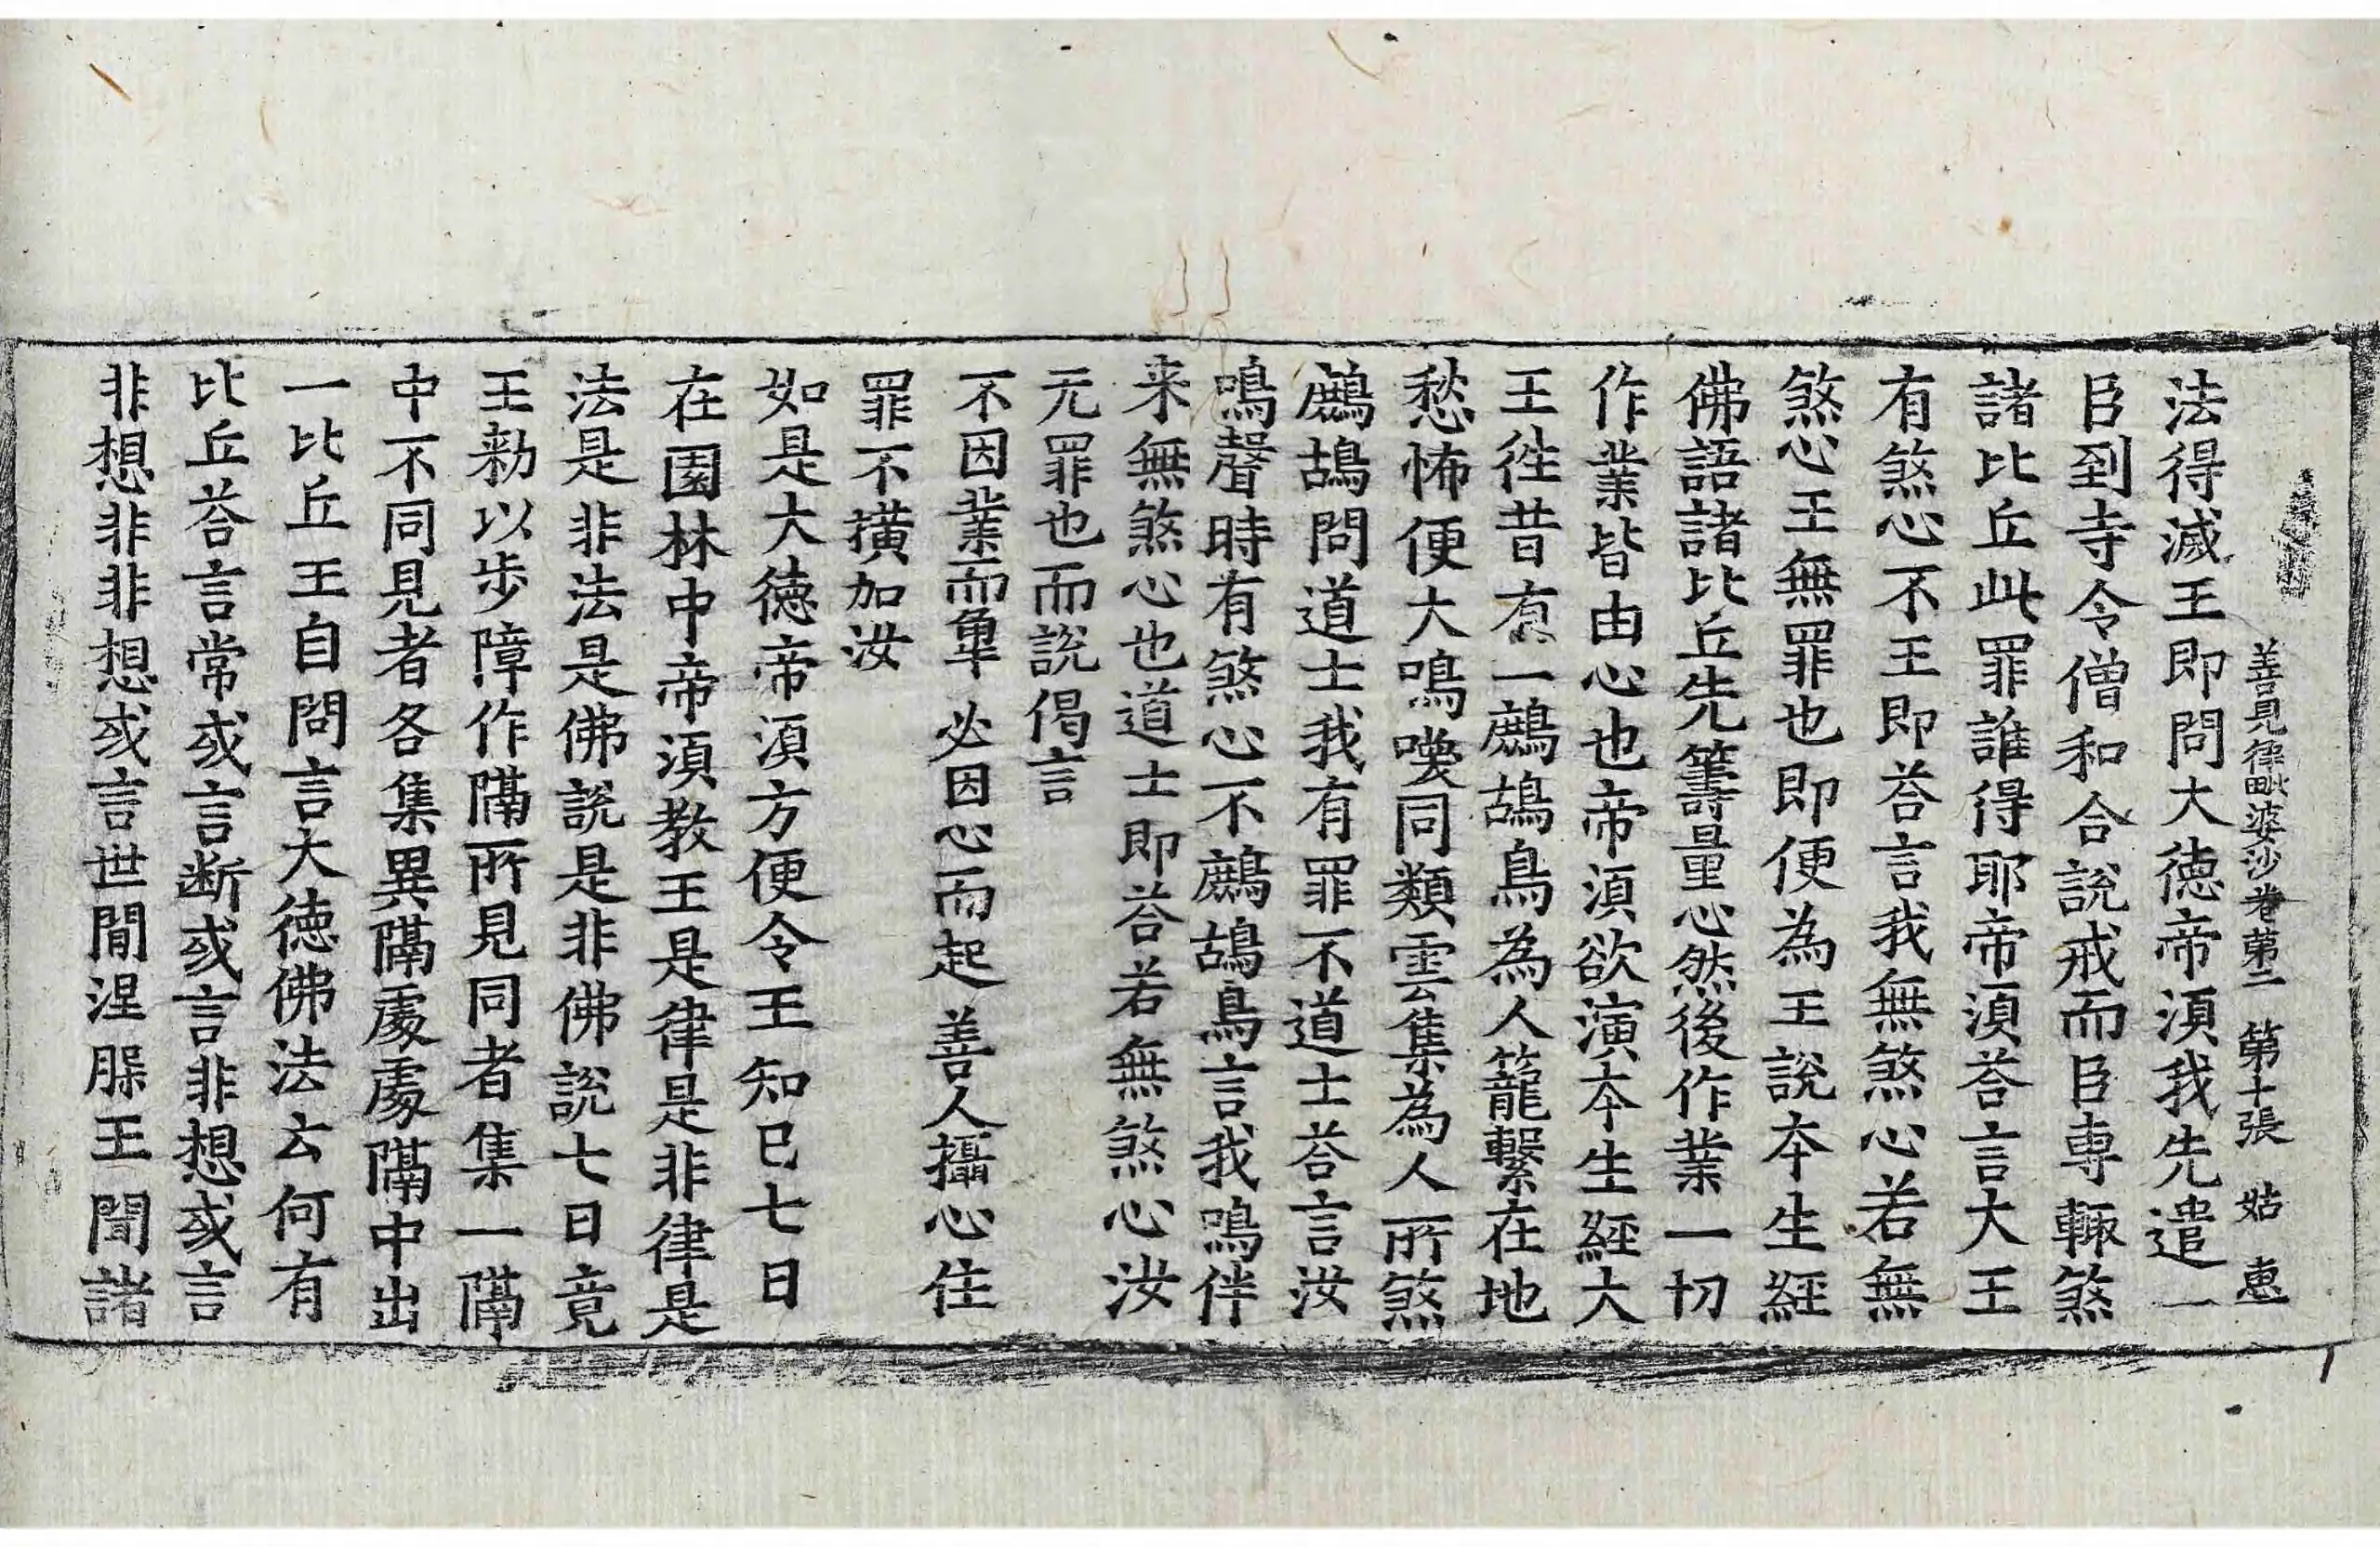 善見律毗婆沙卷第二 第十張 姑 惠
法得滅王即問大徳帝湏我先遣一
臣到寺令僧和合說戒而臣專輙煞
諸比丘此罪誰得耶帝湏荅言大王
有煞心不王即荅言我無煞心若無
煞心王無罪也即便為王說夲生經
佛語諸比丘先籌量心然後作業一切
作業皆由心也帝湏欲演夲生經大
王徃昔有一鷓鴣鳥為人籠繫在地
愁怖便大鳴喚同類雲集為人所煞
鷓鴣問道士我有罪不道士荅言汝
鳴聲時有煞心不鷓鴣鳥言我鳴伴
来無煞心也道士即荅若無煞心汝
无罪也而說偈言
不因業而𮝻 必因心而起 善人攝心住
罪不撗加汝
如是大徳帝湏方便令王知已七日
在園林中帝湏教王是律是非律是
法是非法是佛說是非佛說七日竟
王勑以步障作隔所見同者集一隔
中不同見者各集異隔處處隔中出
一比丘王自問言大徳佛法云何有
比丘荅言常或言断或言非想或言
非想非非想或言世間涅䏶王聞諸